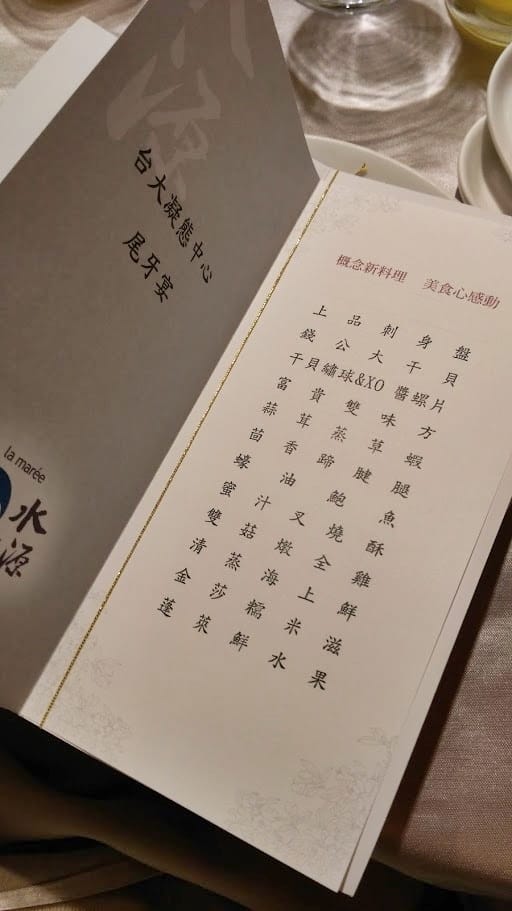 台大凝態中心
尾牙宴
la marée
水
源
概念新料理 美食心感動
上品刺身盤
錢公大干貝
干貝繡球&XO醬螺片
富貴雙味方
蒜茸蒸草蝦
茴香蹄腱腿
蠔油鮑魚
蜜汁叉燒酥
雙菇燉全雞
清蒸海上鮮
金莎糯米滋
蓬萊鮮水果